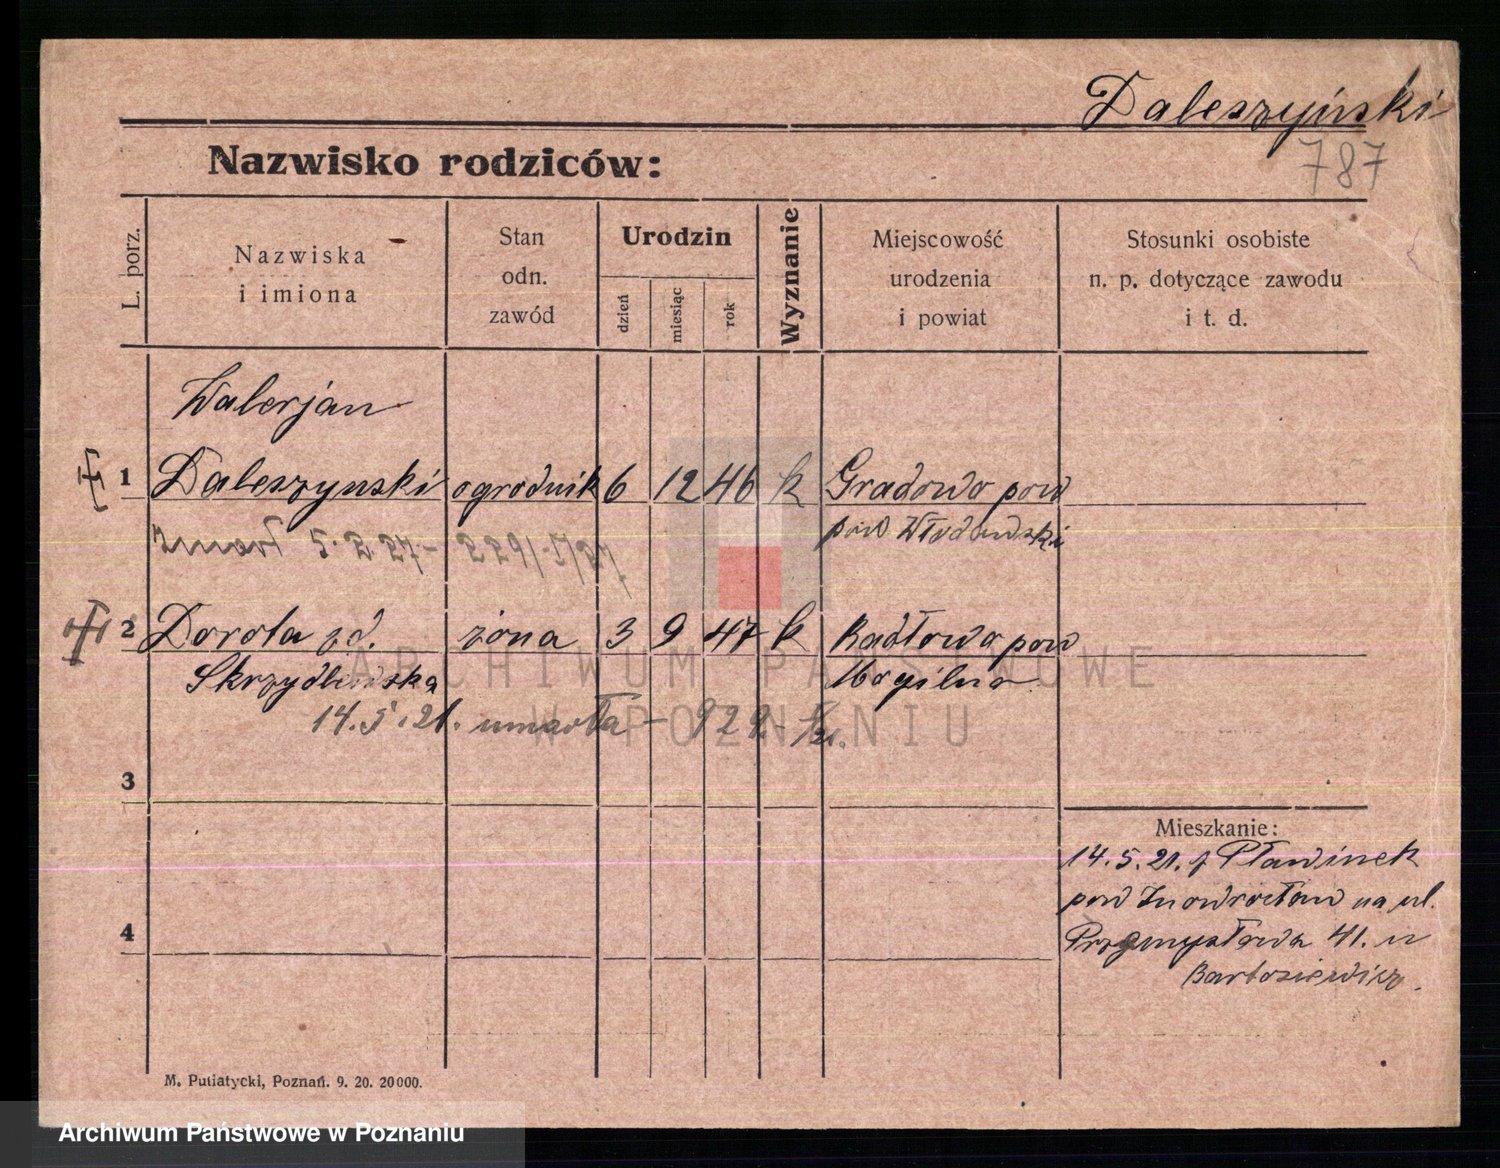 Daleszyński
787
Nazwisko rodziców:
L. porz.
Nazwiska
i imiona
Stan
odn.
zawód
Urodzin
dzień
miesiąc
rok
Wyznanie
Miejscowość
urodzenia
i powiat
Stosunki osobiste
n. p. dotyczące zawodu
i t. d.
Walerjan
1 Daleszynski ogrodnik 6 12 46 k Gradowo pow
pow Włodawski
zmarł 5. 2. 27 -
2 Dorota z d. żona 3 9 47 k Radłowo pow
Skrzydlewska Mogilno
14. 5. 21. umarła - 922
3
4
Mieszkanie:
14. 5. 21. z Pławinek
pow Inowrocław na ul.
Przemysłowa 41. u
Bartosiewicz.
M. Putiatycki, Poznań. 9. 20. 20000.
ARCHIWUM PAŃSTWOWE
W POZNANIU
Archiwum Państwowe w Poznaniu